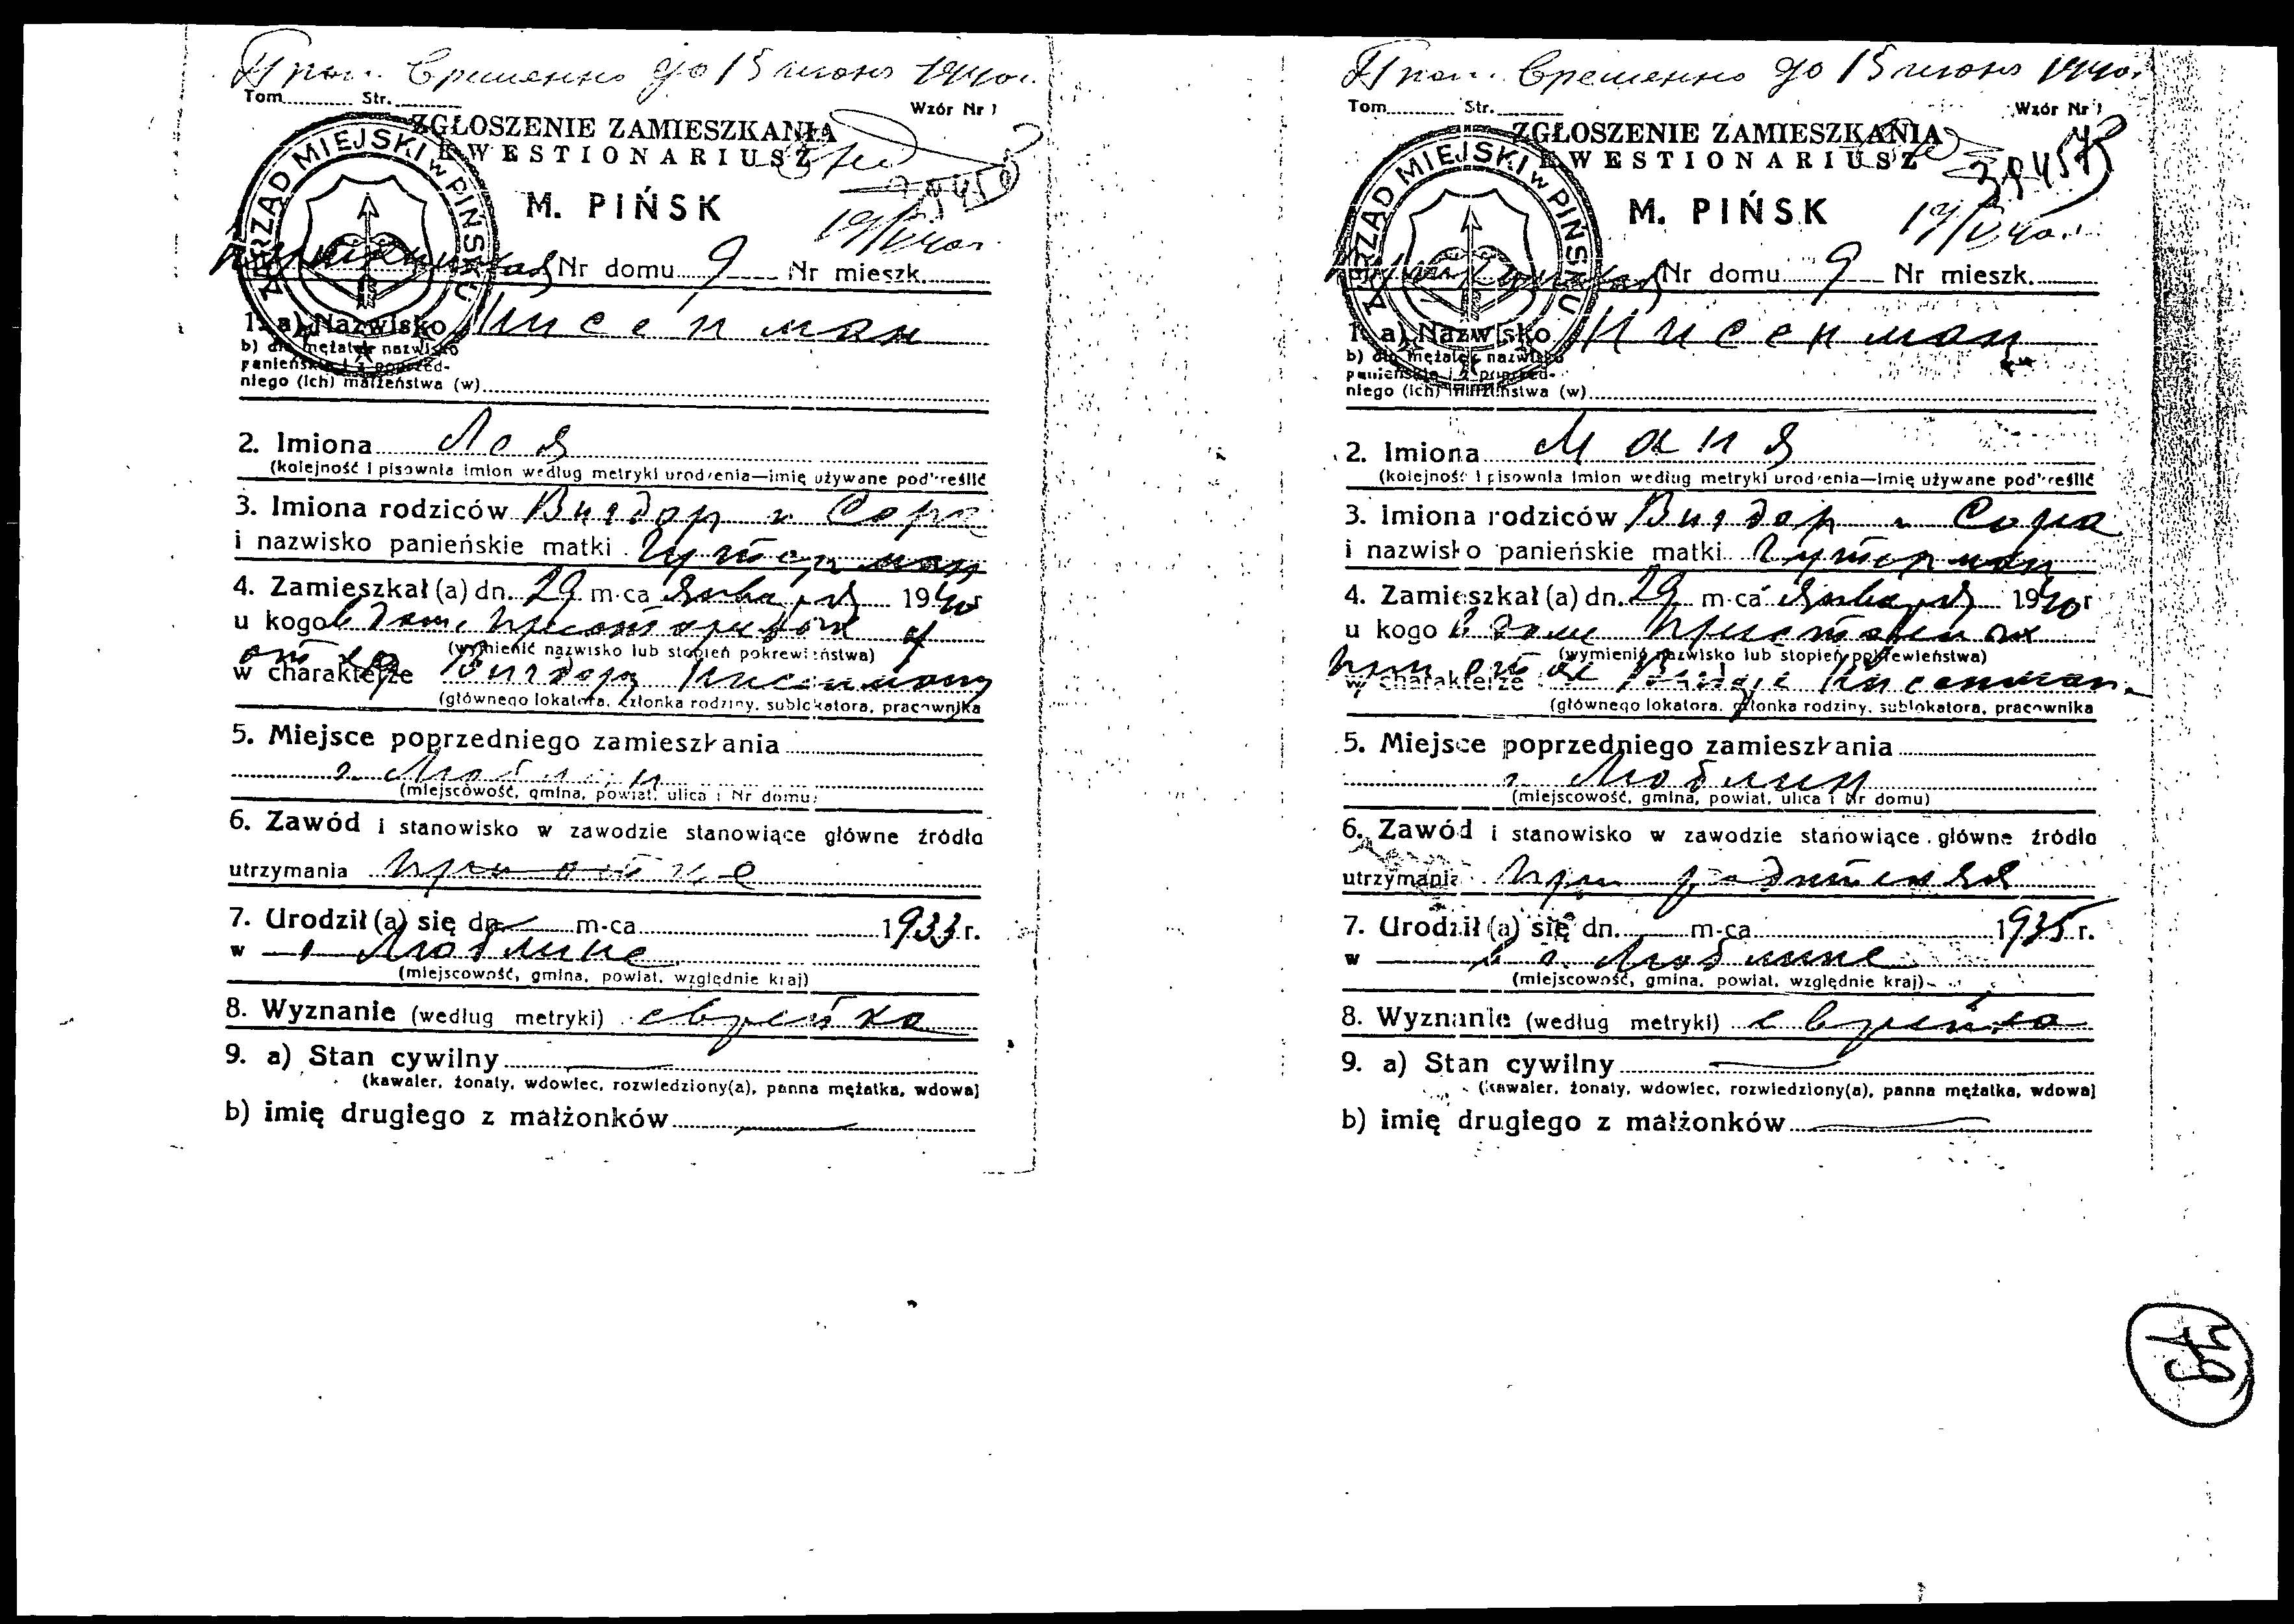 Проп. Временно до 15 июня 1940г.
Tom Str. Wzór Nr 1
ZGŁOSZENIE ZAMIESZKANIA
KWESTIONARIUSZ
ZARZĄD MIEJSKI w PIŃSKU
M. PIŃSK
19/V 40г.
Nr domu 9 Nr mieszk.
1. a) Nazwisko Кисенман
b) dla mężatek nazwisko
panieńskie i z poprzed-
niego (ich) małżeństwa (w)
2. Imiona Лоя
(kolejność i pisownia imion według metryki urodzenia—imię używane podkreślić
3. Imiona rodziców Вигдор и Сора
i nazwisko panieńskie matki Гутерман
4. Zamieszkał (a) dn. 29 m-ca января 1940 r
u kogo в доме
(wymienić nazwisko lub stopień pokrewieństwa)
w charakterze Вигдора Кисенмана
(głównego lokatora, członka rodziny, sublokatora, pracownika
5. Miejsce poprzedniego zamieszkania
г. Люблин
(miejscowość, gmina, powiat, ulica i Nr domu)
6. Zawód i stanowisko w zawodzie stanowiące główne źródło
utrzymania при отце
7. Urodził (a) się dn. m-ca 1933 r.
w г. Люблине
(miejscowość, gmina, powiat, względnie kraj)
8. Wyznanie (według metryki) еврейка
9. a) Stan cywilny
(kawaler, żonaty, wdowiec, rozwiedziony(a), panna mężatka, wdowa)
b) imię drugiego z małżonków
Проп. Временно до 15 июня 1940г.
Tom Str. Wzór Nr 1
ZGŁOSZENIE ZAMIESZKANIA
KWESTIONARIUSZ
ZARZĄD MIEJSKI w PIŃSKU
M. PIŃSK
19/V 40г.
Nr domu 9 Nr mieszk.
1. a) Nazwisko Кисенман
b) dla mężatek nazwisko
panieńskie i z poprzed-
niego (ich) małżeństwa (w)
2. Imiona Маня
(kolejność i pisownia imion według metryki urodzenia—imię używane podkreślić
3. Imiona rodziców Вигдор и Сора
i nazwisko panieńskie matki Гутерман
4. Zamieszkał (a) dn. 29 m-ca января 1940 r
u kogo в доме
(wymienić nazwisko lub stopień pokrewieństwa)
w charakterze при отце Вигдоре Кисенман
(głównego lokatora, członka rodziny, sublokatora, pracownika
5. Miejsce poprzedniego zamieszkania
г. Люблин
(miejscowość, gmina, powiat, ulica i Nr domu)
6. Zawód i stanowisko w zawodzie stanowiące główne źródło
utrzymania при родителях
7. Urodził (a) się dn. m-ca 1935 r.
w в г. Люблине
(miejscowość, gmina, powiat, względnie kraj)
8. Wyznanie (według metryki) еврейка
9. a) Stan cywilny
(kawaler, żonaty, wdowiec, rozwiedziony(a), panna mężatka, wdowa)
b) imię drugiego z małżonków